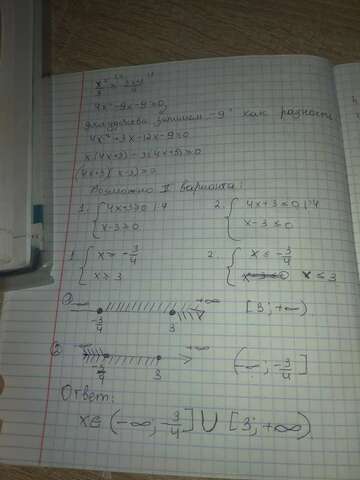 x²/3 ≥ (3x+3)/4
4x² - 9x - 9 ≥ 0,
запишем -9 как разность
4x² + 3x - 12x - 9 ≥ 0
x(4x+3) - 3(4x+3) ≥ 0
(4x+3)(x-3) ≥ 0
Возможно II варианта:
1. { 4x+3 ≥ 0 | :4 2. { 4x+3 ≤ 0 | :4
x-3 ≥ 0 x-3 ≤ 0
1. { x ≥ -3/4 2. { x ≤ -3/4
x ≥ 3 x ≤ 3
① -∞ +∞ [3; +∞)
-3/4 3
② +∞ (-∞; -3/4]
-3/4 3
Ответ:
x∈ (-∞; -3/4] ∪ [3; +∞)